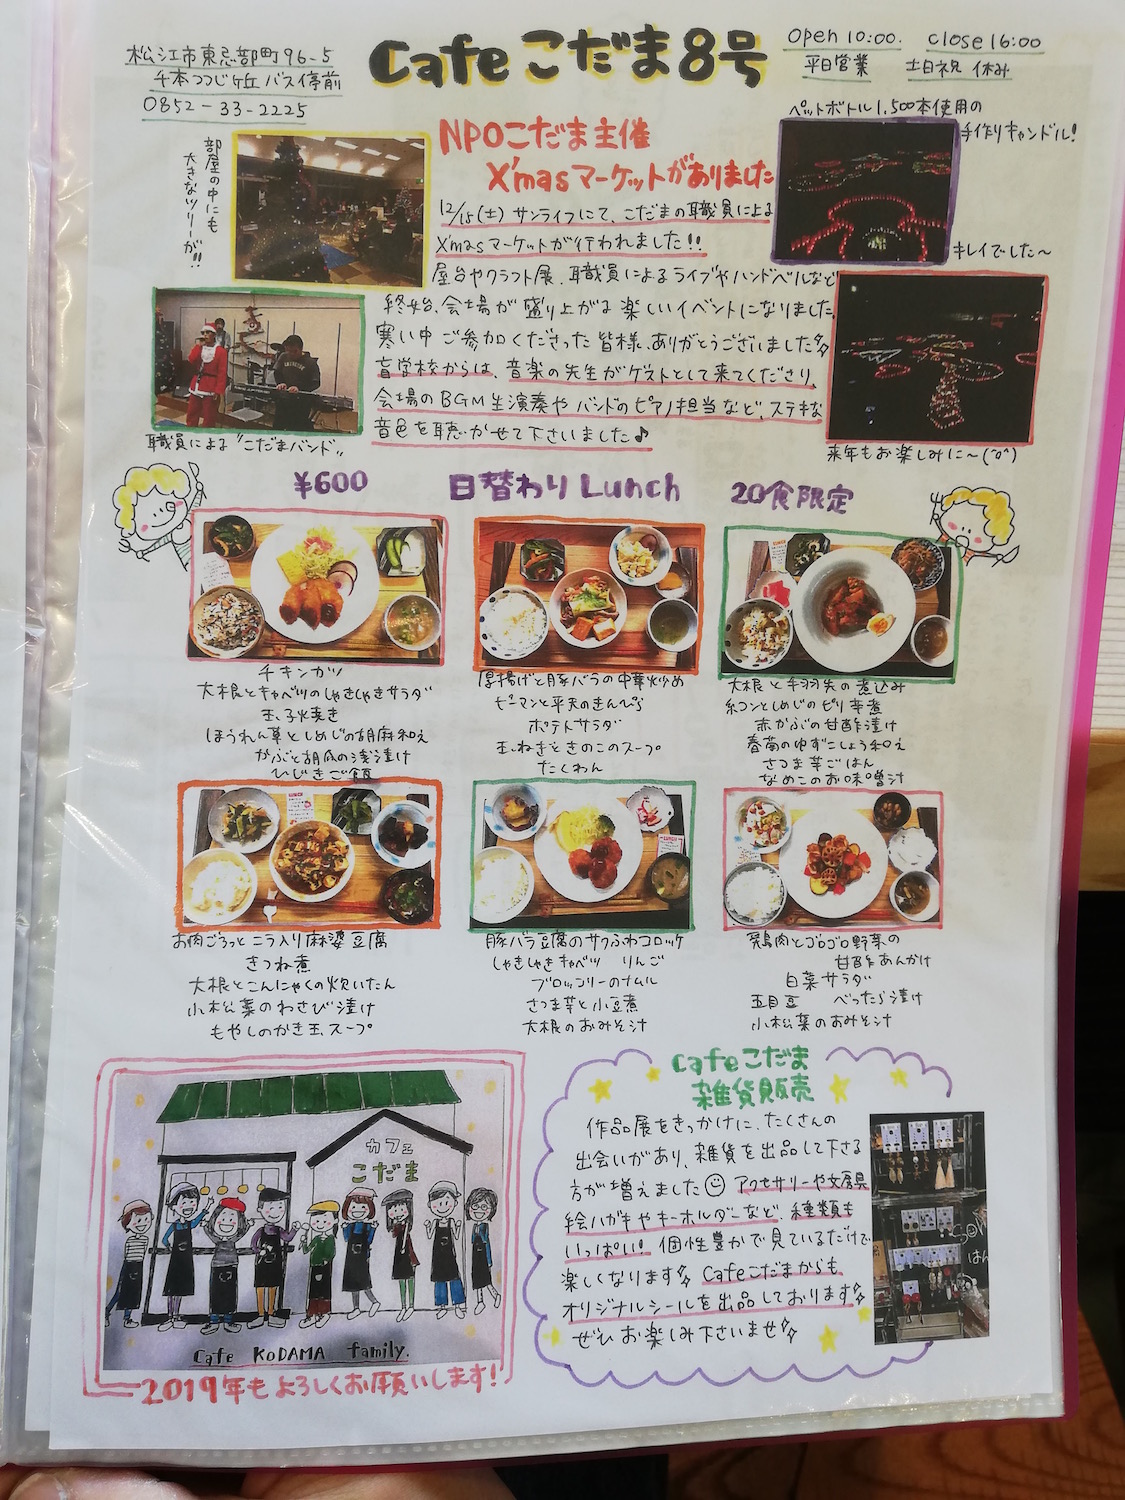 Cafe こだま8号
松江市東忌部町96-5
千本つつじヶ丘 バス停前
0852-33-2225
Open 10:00. Close 16:00
平日営業 土日祝 休み
NPOこだま主催
X'mas マーケットがありました
12/15(土) サンライフにて、こだまの職員による
X'masマーケットが行われました!!
屋台やクラフト展、職員によるライブやハンドベルなど
終始、会場が盛り上がる楽しいイベントになりました。
寒い中ご参加くださった皆様、ありがとうございました
盲学校からは、音楽の先生がゲストとして来てくださり、
会場のBGM生演奏やバンドのピアノ担当など、ステキな
音色を聴かせて下さいました♪
部屋の中にも
大きなツリーが!!
職員による"こだまバンド"
ペットボトル1,500本使用の
手作りキャンドル!
キレイでした〜
来年もお楽しみに〜(^o^)
¥600 日替わり Lunch 20食限定
チキンカツ
大根とキャベツのしゃきしゃきサラダ
玉子焼き
ほうれん草としめじの胡麻和え
かぶと胡瓜の浅漬け
ひじきご飯
厚揚げと豚バラの中華炒め
ピーマンと平天のきんぴら
ポテトサラダ
玉ねぎときのこのスープ
たくわん
大根と手羽先の煮込み
糸コンとしめじのピリ辛煮
赤かぶの甘酢漬け
春菊のゆずこしょう和え
さつま芋ごはん
なめこのお味噌汁
お肉ごろっとニラ入り麻婆豆腐
きつね煮
大根とこんにゃくの炊いたん
小松菜のわさび漬け
もやしのかき玉スープ
豚バラ豆腐のサクふわコロッケ
しゃきしゃきキャベツ りんご
ブロッコリーのナムル
さつま芋と小豆煮
大根のおみそ汁
鶏肉とゴロゴロ野菜の
甘酢あんかけ
白菜サラダ
五目豆 べったら漬け
小松菜のおみそ汁
カフェ
こだま
Cafe KODAMA family.
2019年もよろしくお願いします!
Cafeこだま
雑貨販売
作品展をきっかけに、たくさんの
出会いがあり、雑貨を出品して下さる
方が増えました アクセサリーや文房具
絵ハガキやキーホルダーなど、種類も
いっぱい! 個性豊かで見ているだけで
楽しくなります Cafeこだまからも
オリジナルシールを出品しております
ぜひお楽しみ下さいませ